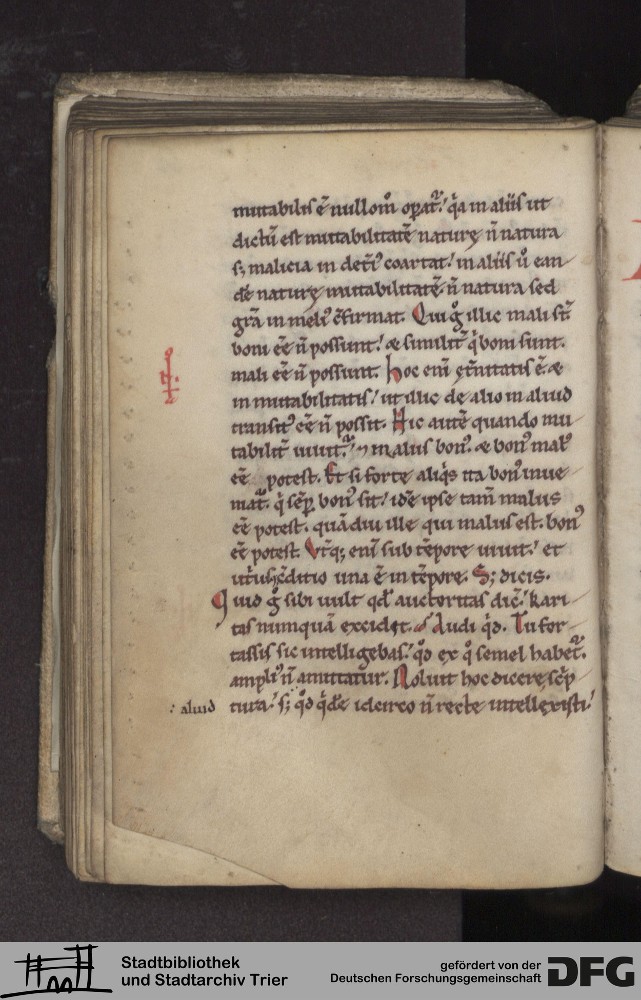 mutabilis ē nullomͦ oꝑat᷑. q̇a in aliis ut
dictū est mutabilitatē naturę n̄ natura
s; malicia in det̄i᷒ coartat. in aliis u̇ ean
dē naturę mutabilitatē. n̄ natura sed
gr̄a in meli᷒ ↄ̄firmat. Qui g̊ illic mali st̄
boni eē n̄ possunt. & similit̄ q̇ boni sunt.
mali eē n̄ possunt. hoc eni ę̄nitatis ē. &
inmutabilitatis. ut illic de alio in aliud
transit᷒ eē n̄ possit. Hic autē quando mu
tabilit̄ uiuit᷑. ⁊ malus bon᷒. & bon᷒ mal᷒
eē potest. Et si forte aliq̇s ita bon᷒ inue
niat᷑. q̇ sēꝑ bon᷒ sit. idē ipse tam̄ malus
eē potest. quādiu ille qui malus est. bon᷒
eē potest. Vt̄q; eni sub tēpore uiuit. et
ut᷑usq; ↄ̄ditio una ē in tēpore. S; dicis.
Quid g̊ sibi uult qd̄ auctoritas dic̄. kari
tas numquā excidet. Audi q̇d. Tu for
tassis sic intelligebas. qd̊ ex q̊ semel habet᷑.
ampli᷒ n̄ amittatur. Noluit hoc dicere sc̄p
tura. s; qd̊ q̇dē idcirco n̄ recte intellexisti.
aliud
Stadtbibliothek
und Stadtarchiv Trier
gefördert von der
Deutschen Forschungsgemeinschaft
DFG